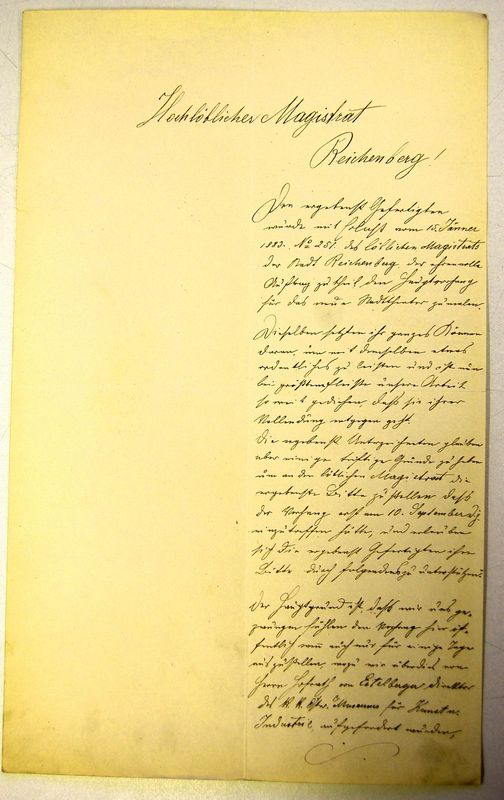 Hochlöblicher Magistrat
Reichenberg!
Den ergebenst Gefertigten
wurde mit Erlaß vom 15. Jänner
1883. No 257. des löblichen Magistrats
der Stadt Reichenberg der ehrenvolle
Auftrag zu theil, den Hauptvorhang
für das neue Stadttheater zu malen.
Dieselben setzten ihr ganzes Können
daran, um mit demselben etwas
ordentliches zu leisten und ist nun
bei größtem Fleiße unsere Arbeit
so weit gediehen, daß sie ihrer
Vollendung entgegen geht.
Die ergebenst Unterzeichneten glauben
aber einige triftige Gründe zu haben
um an den löblichen Magistrat die
ergebenste Bitte zu stellen, daß
der Vorhang erst am 10. September
einzutreffen hätte, und erlauben
sich die ergebenst Gefertigten ihre
Bitte durch folgendes zu unterstützen.
Der Hauptgrund ist, daß wir uns ge-
zwungen fühlen den Vorhang hier öf-
fentlich wenn auch nur für einige Tage
auszustellen, wozu wir überdies von
Herrn Hofrath von Eitelberger, Direktor
des K. K. Österr. Museums für Kunst u.
Industrie aufgefordert wurden,